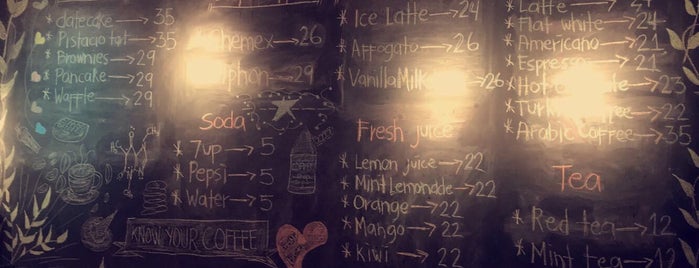 datecake → 35
Pistacio tart → 35
Brownies → 29
Pancake → 29
Waffle → 29
Chemex → 26
29
Soda
7up → 5
Pepsi → 5
Water → 5
KNOW YOUR COFFEE
Ice Latte → 24
Affogato → 26
Vanilla Milk → 26
Fresh juice
Lemon juice → 22
Mint Lemonade → 22
Orange → 22
Mango → 22
Kiwi → 22
Latte → 24
Flat white → 24
Americano → 21
Espresso → 21
Hot
Coffee → 22
Arabic Coffee → 35
Tea
Red tea → 12
Mint tea → 12